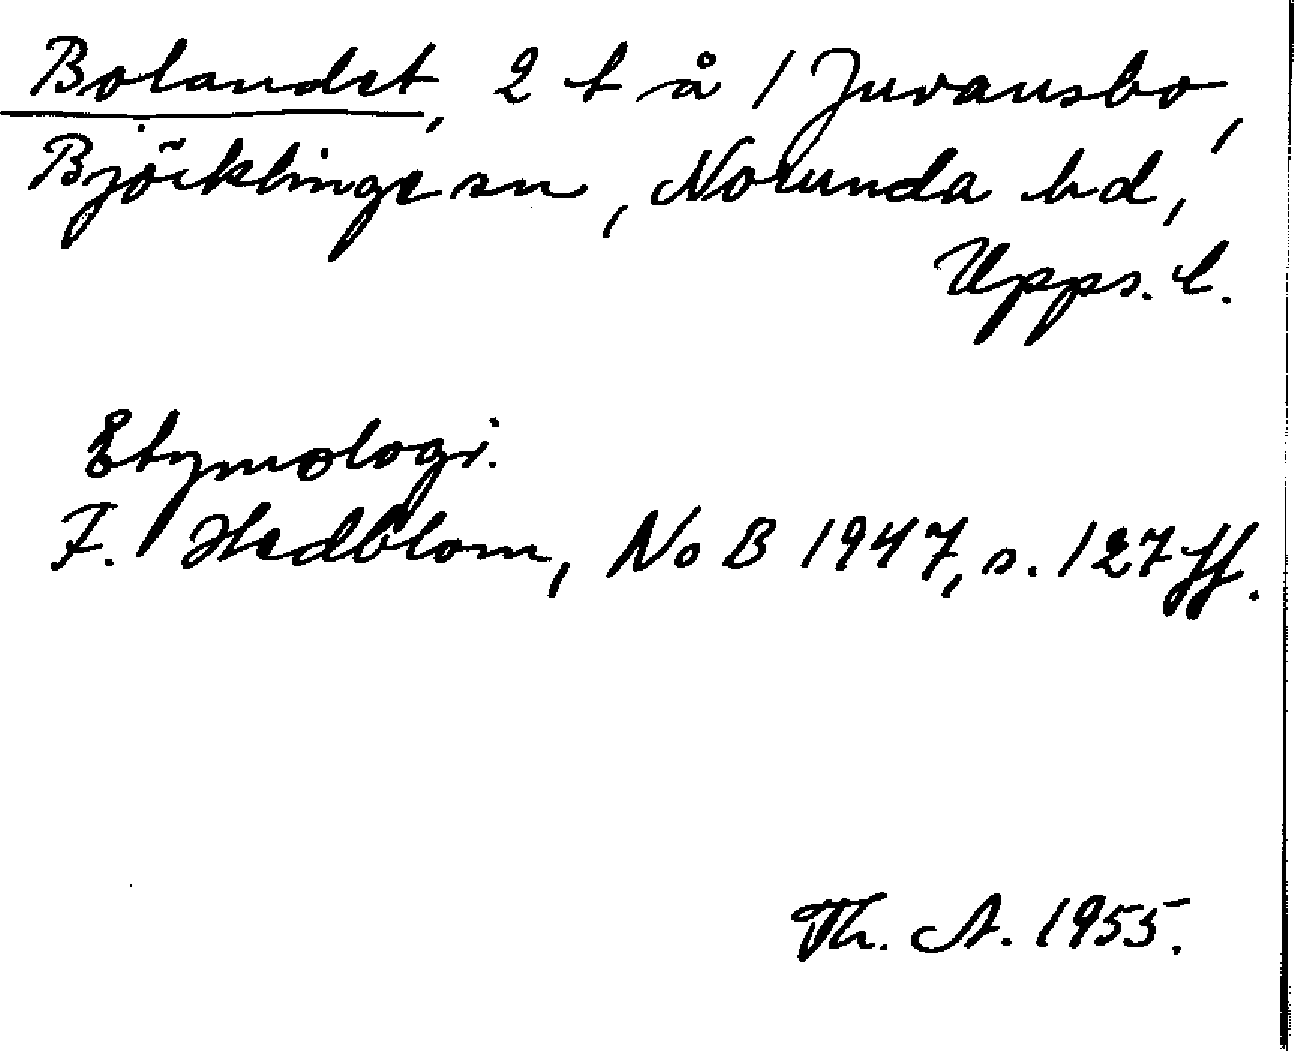 Bolandet, 2 t å / Juvansbo,
Björklinge sn, Norunda hd,
Upps. l.
Etymologi.
F. Hedblom, NoB 1947, s. 127 ff.
Th. A. 1955.